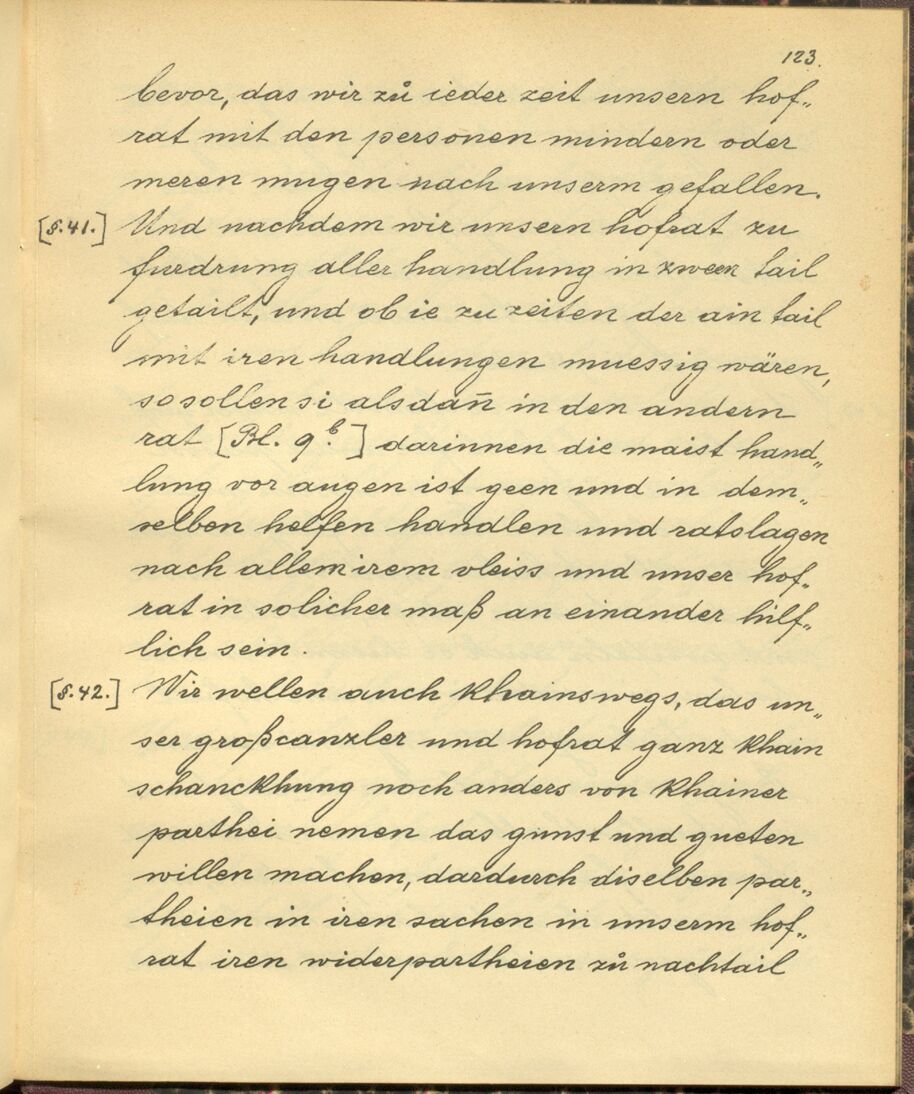 123.
bevor, das wir zů ieder zeit unsern hof„
rat mit den personen mindern oder
meren mugen nach unserm gefallen.
[§.41.] Und nachdem wir unsern hofrat zu
furdrung aller handlung in zween tail
getailt, und ob ie zu zeiten der ain tail
mit iren handlungen muessig wären,
so sollen si alsdan̄ in den andern
rat [Bl. 9ᵇ.] darinnen die maist hand„
lung vor augen ist geen und in dem„
selben helfen handlen und ratslagen
nach allem irem vleiss und unser hof„
rat in solicher maß an einander hilf„
lich sein.
[§.42.] Wir wellen auch khainswegs, das un„
ser großcanzler und hofrat ganz khain
schanckhung noch anders von khainer
parthei nemen das gunst und gueten
willen machen, dardurch diselben par„
theien in iren sachen in unserm hof„
rat iren widerpartheien zů nachtail